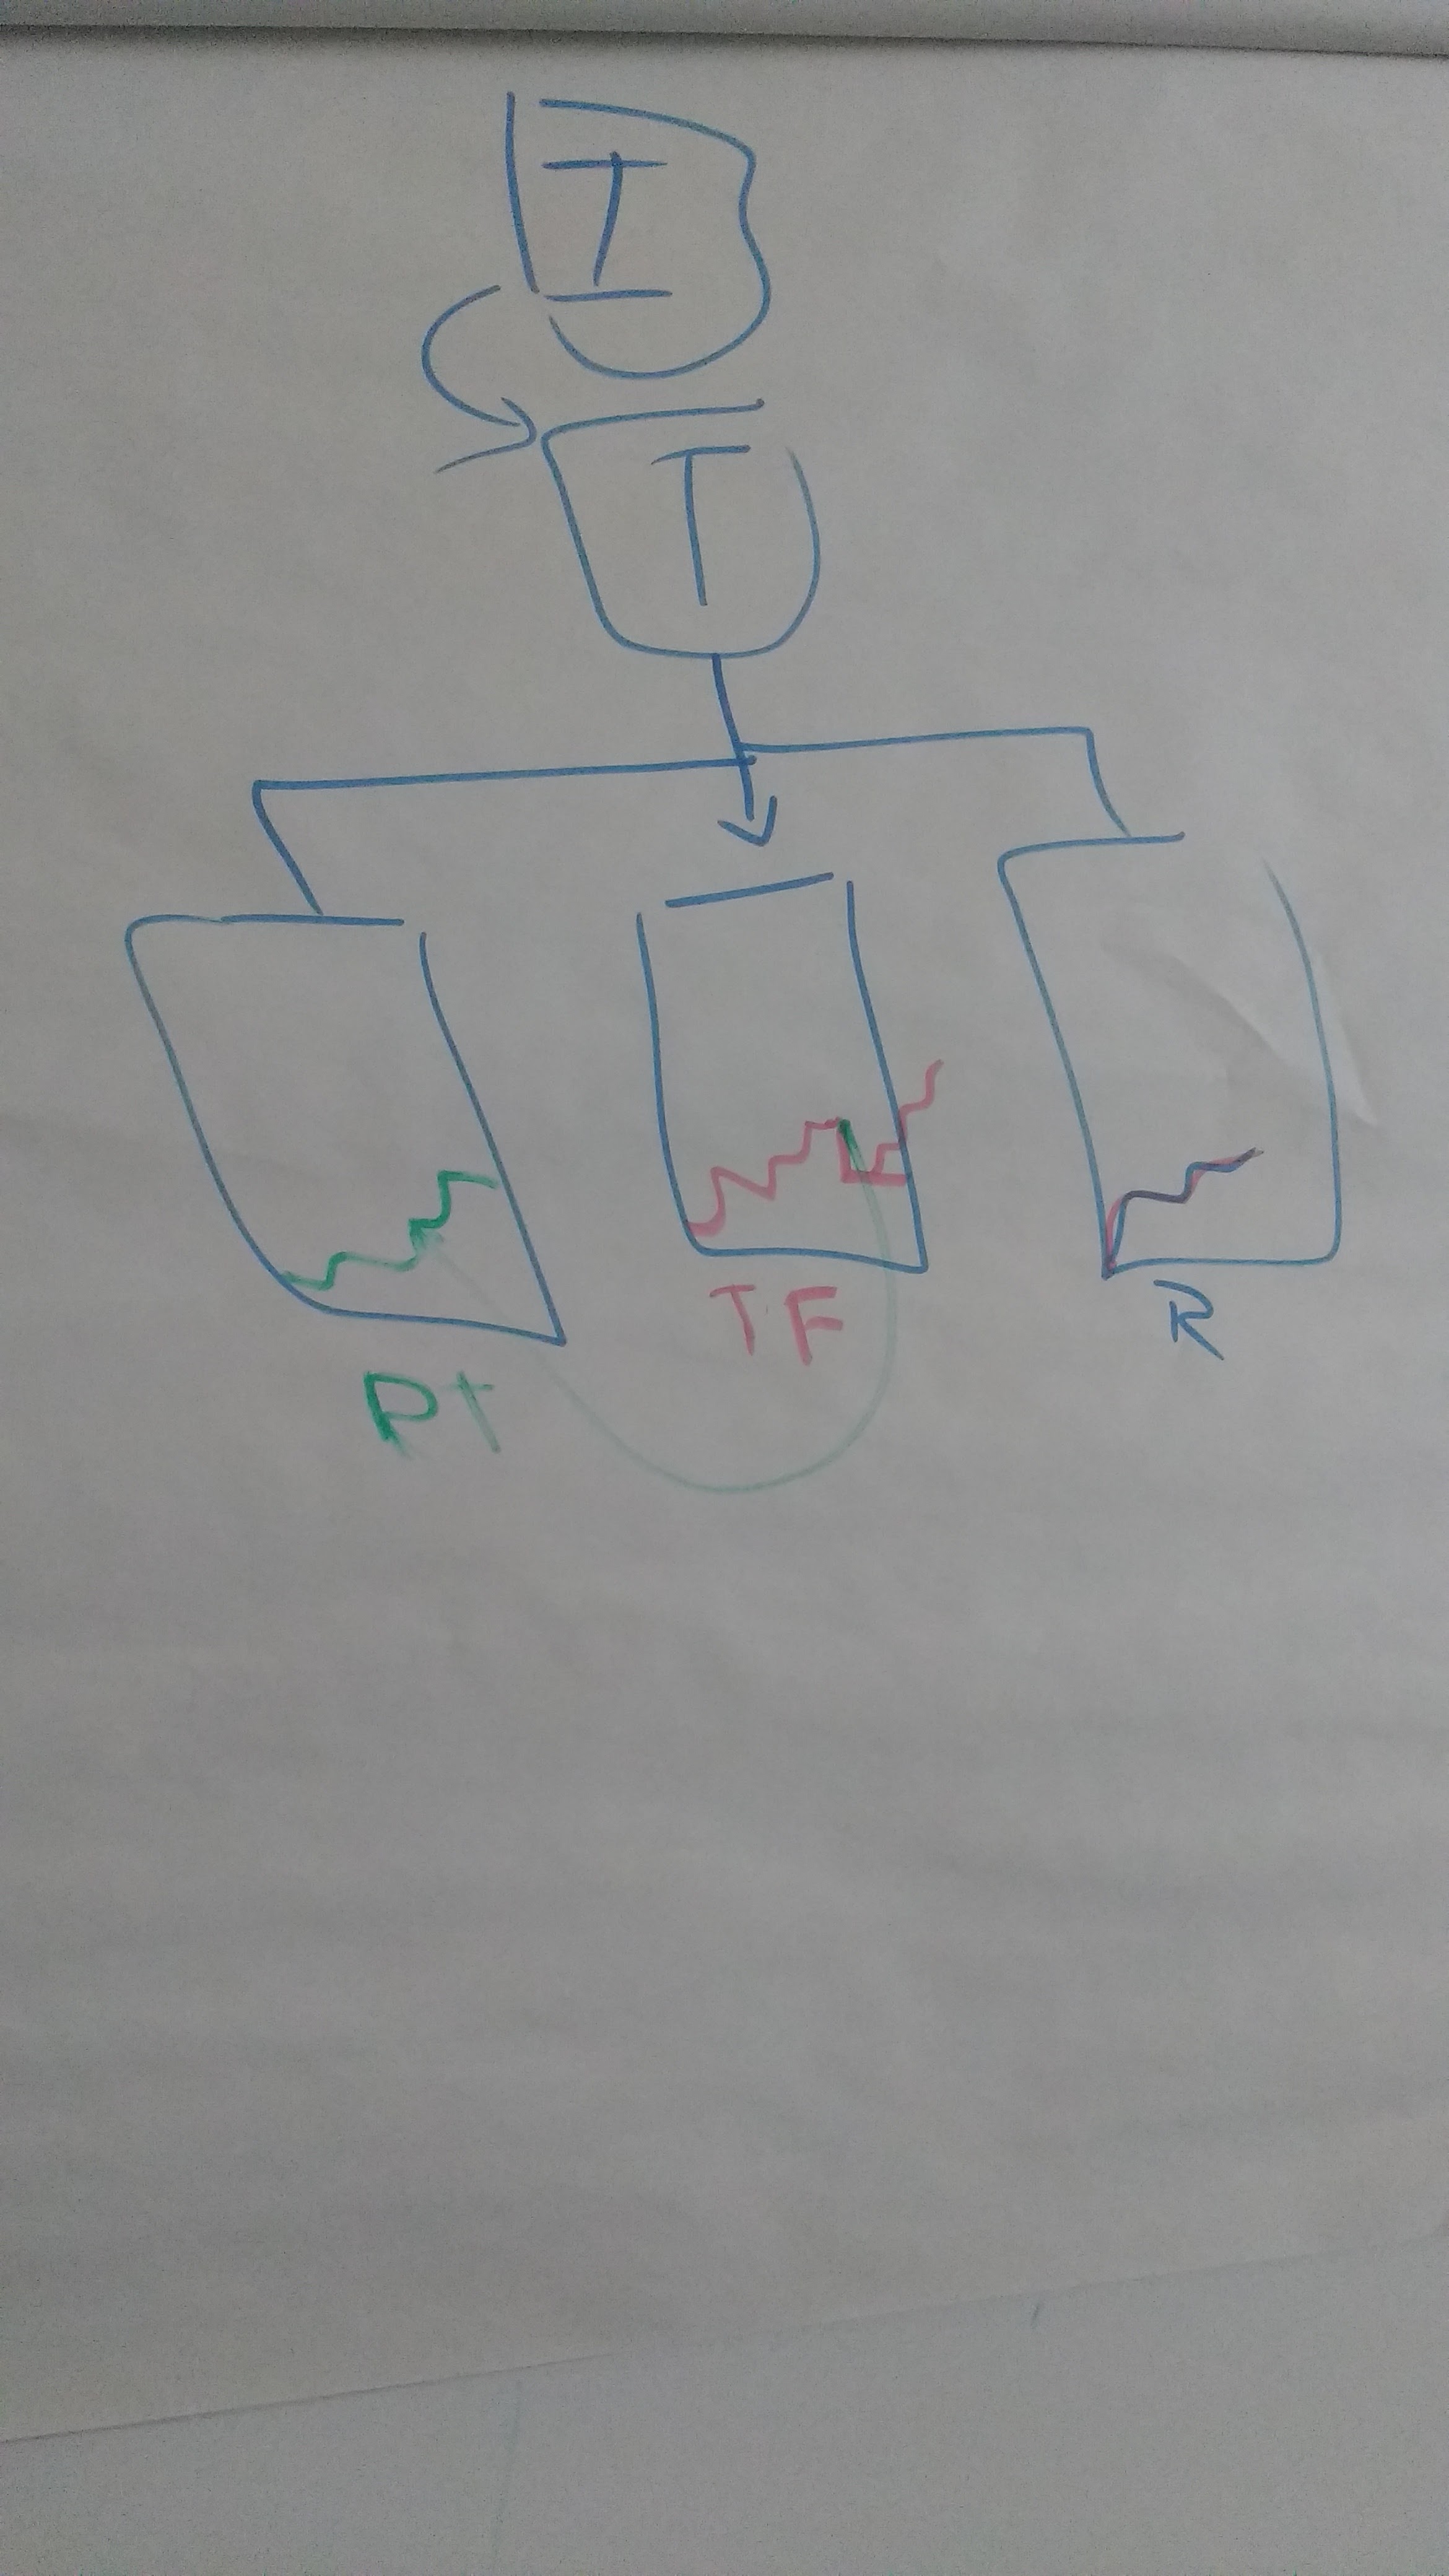 I
T
PT
TF
R